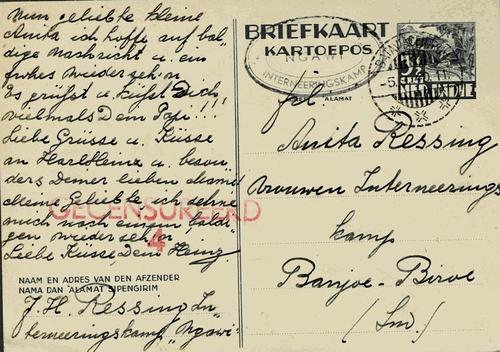 Nun geliebte kleine
Anita ich hoffe auf bal-
dige Nachricht u. ein
frohes Wiederseh'n
Es grüsst u. küsst Dich
vielmals Dein Papi!!!
Liebe Grüsse u. Küsse
an Karl Heinz u. beson
ders Deiner lieben
meine Geliebte ich sehne
mich nach einem baldi
gen Wiederseh'n
Liebe Küsse, Dein Heinz
GECENSUREERD
4
NAAM EN ADRES VAN DEN AFZENDER
NAMA DAN ALAMAT SIPENGIRIM
J. H. Ressing In-
terneeringskamp "Ngawi"
BRIEFKAART
KARTOEPOS
NGAWI
INTERNEERINGSKAMP
ADRES ALAMAT
Anita Ressing
Vrouwen Interneerings
kamp
Banjoe-Biroe